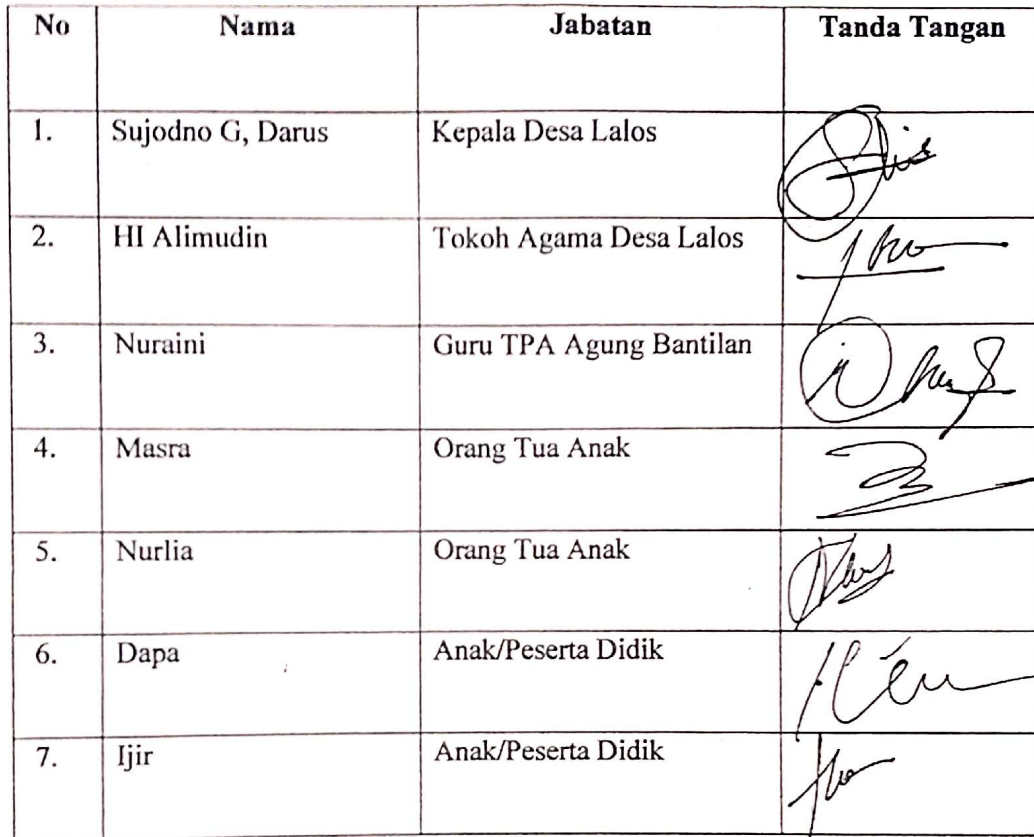 No Nama Jabatan Tanda Tangan
1. Sujodno G, Darus Kepala Desa Lalos
2. HI Alimudin Tokoh Agama Desa Lalos
3. Nuraini Guru TPA Agung Bantilan
4. Masra Orang Tua Anak
5. Nurlia Orang Tua Anak
6. Dapa Anak/Peserta Didik
7. Ijir Anak/Peserta Didik